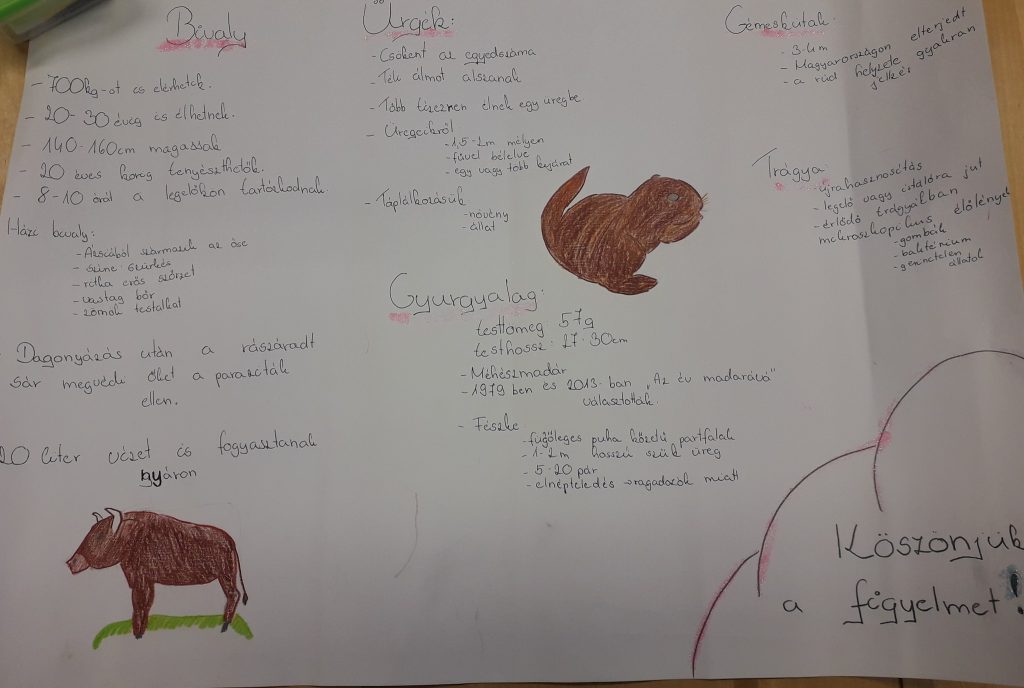 Bivaly
- 700kg-ot is elérhetik.
- 20-30 évig is élhetnek.
- 140-160cm magassak
- 20 éves korig tenyészthetők.
- 8-10 órát a legelőkön tartózkodnak.
Házi bivaly:
- Ázsiából származik az őse
- színe: szürkés
- ritka erős szőrzet
- vastag bőr
- zömök testalkat
Dagonyázás után a rászáradt
sár megvédi őket a paraziták
ellen.
20 liter vizet is fogyasztanak
nyáron
Ürgék:
- Csökent az egyedszáma
- Téli álmot alszanak
- Több tizezren élnek egy üregbe
- Üregeikről
- 1,5-2m mélyen
- fűvel bélelve
- egy vagy több kijárat
- Táplálkozásuk
- növény
- állat
Gyurgyalag:
testtömeg: 57g
testhossz: 27-30cm
- Méhészmadár
- 1979 ben és 2013-ban „Az év madarává"
választották.
- Fészke
- függőleges puha közdű partfalak
- 1-2m hosszú szűk üreg
- 5-20 pár
- elnépteledés → ragadozók miatt
Gémeskútak:
- 3-4m
- Magyarországon elterjedt
- a rúd helyzete gyakran
jelkés
Trágya:
- újrahasznosítás
- legelő vagy irtalóra jut
- érlődő trágyában
mikroszkópikus élőlények
- gombák
- baktérium
- gerinctelen
állatok
Köszönjük
a figyelmet!